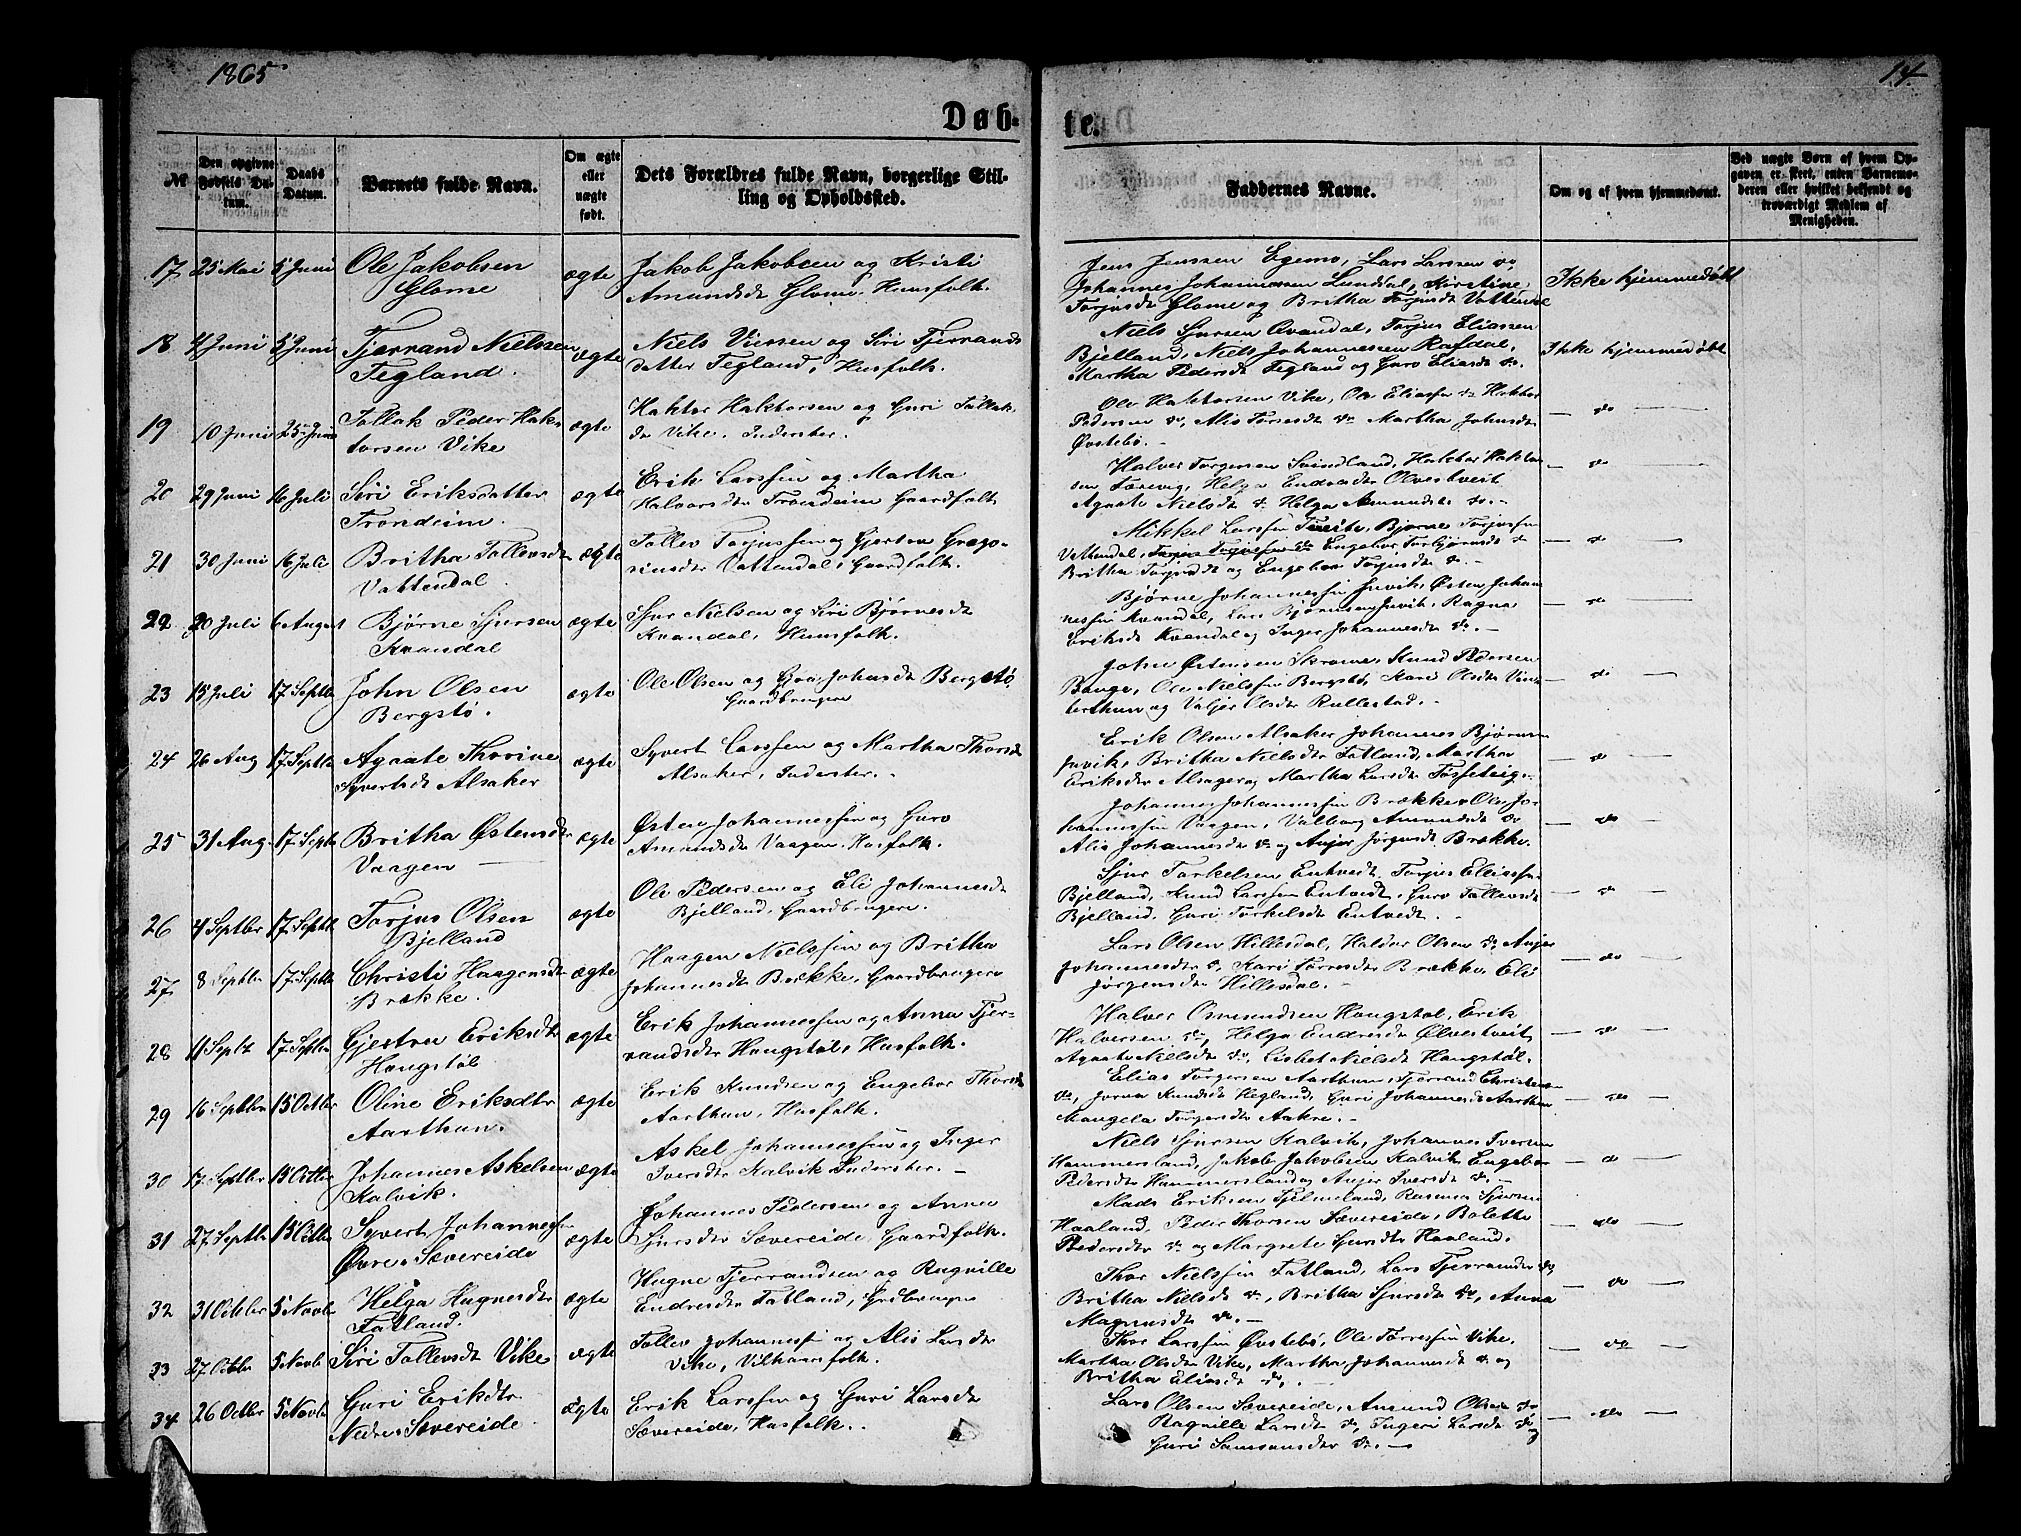 1865
14.
Døb-
te.
№
Den opgivne Fødsels Datum.
Daabs Datum.
Barnets fulde Navn.
Om ægte eller uægte født.
Dets Forældres fulde Navn, borgerlige Stilling og Opholdssted.
Faddernes Navne.
Om og af hvem hjemmedøbt.
Ved uægte Børn af hvem Opgaven er skeet, enten Barnemoderen eller hvilket bekjendt og troværdigt Medlem af Menigheden.
17 25 Mai 5 Juni Ole Jakobsen
Glome
ægte
Jakob Jakobsen og Kristi
Amundsdt Glome. Huusfolk.
Jens Jenssen Egemo, Lars Larssen do,
Johannes Johannessen Lunddal, Kirstine
Torjusdt Glome og Britha Torjusdt
Ikke hjemmedøbt
18 4 Juni 5 Juni Tjerrand Nielssen
Tegland.
ægte
Niels Viersen og Siri Tjerrands
datter Tegland, Husfolk.
Niels Sjursen Qvandal, Torjus Eliassen
Bjelland, Niels Johannessen Rafdal,
Martha Pedersdt Tegland og Guro Eliasdt do.
Ikke hjemmedøbt
19 10 Juni 25 Juni Tollak Peder Hak
torsen Vike
ægte
Haktor Haktorsen og Guri Tollak
dr Vike. Inderster.
Ole Haktorsen Vike, Ole Eliassen do Haktor
Pedersen do, Alis Torresdt do Martha Johnsdt
Øvstebö.
— do —
20 29 Juni 16 Juli Siri Eriksdatter
Trondeim.
ægte
Erik Larssen og Martha
Halvorsdtr Trondeim Gaardfolk
Halver Torgersen Svindland, Haktor Haktor
sen Helga Endresdtr Ølvestveit
Agaate Nielsdt do. Helga Amundsdt do.
— do —
21 30 Juni 16 Juli Britha Tollevsdtr
Vattendal.
ægte
Tollev Torjussen og Gjertru Grego-
riusdtr Vattendal, Gaardfolk.
Mikkel Larssen Tveite, Bjørne Torjussen
Vattendal, do Engebor Torbjørnsdt do
Britha Torjusdt og Engebor Torjusdt do.
— do —
22 20 Juli 6 August Bjørne Sjursen
Kvandal
ægte
Sjur Nielsen og Siri Bjørnesdt
Kvandal, Huusfolk.
Bjørne Johannessen Juvik, Østen Johan
nessen Kvandal, Lars Bjørnsen Juvik, Ragna
Eriksdt Kvandal og Inger Johannesdt do.
— do —
23 15 Juli 17 Septbr John Olsen
Bergstø.
ægte
Ole Olsen og Gjoa Johnsdt Bergstø,
Gaardbrugere
John Østensen Skromme, Knud Pedersen
Bauge, Ole Nielssen Bergstö, Kari Olsdtr Vin
terthun og Valjer Olsdtr Rullestad.
— do —
24 26 Aug 17 Septbr Agaate Thorine
Syvertsdt Alsaker
ægte
Syvert Larssen og Martha Thorsdt
Alsaker, Inderster.
Erik Olsen Alsaker Johannes Bjørnsen
Juvik, Britha Nielsdt Fatland, Martha
Eriksdtr Alsager og Martha Larsdtr Tøsseteig.
— do —
25 31 Aug. 17 Septbr Britha Østensdtr
Vaagen
ægte
Østen Johannessen og Guro
Amundsdt Vaagen. Husfolk.
Johannes Johannessen Brække Ole Jo-
hannessen Vaagen, Valborg Amundsdt do
Alis Johannesdt do og Anjer Jørgensdt Brække.
— do —
26 4 Septbr 17 Septbr Torjus Olsen
Bjelland
ægte
Ole Pedersen og Eli Johannesdt
Bjelland, Gaardbrugere.
Sjur Torkelsen Entvedt, Torjus Eliassen
Bjelland, Knud Larssen Entvedt, Guro Tollevsdt
Bjelland, Guri Torkelsdt Entvedt.
— do —
27 8 Septbr 17 Septbr Christi Haagensdtr
Brække.
ægte
Haagen Nielssen og Britha
Johannesdt Brække, Gaardbrugere
Lars Olsen Hillesdal, Haldor Olsen do. Anjer
Johannesdtr do, Kari Torresdt Brække, Eli
Jørgensdt Hillesdal.
— do —
28 11 Septbr 17 Septbr Gjertru Eriksdtr
Hougstøl
ægte
Erik Johannessen og Anna Tjer-
randsdtr Hougstøl, Husfolk.
Halver Osmundsen Hougstøl, Erik
Halversen do, Helga Endresdt Ølvestveit
Agaate Nielsdt do, Lisbet Nielsdt Hougstøl.
— do —
29 16 Septbr 15 Octbr Oline Eriksdtr
Aarthun.
ægte
Erik Knudsen og Engebor Thorsdt
Aarthun, Husfolk.
Elias Torgersen Aarthun, Tjerrand Christensen
do, Jorna Knudsdt Hegland, Guri Johannesdt Aarthun
Mangela Torgersdtr Aakre.
— do —
30 17 Septbr 15 Octbr Johannes Askelsen
Kalvik.
ægte
Askel Johannessen og Inger
Iversdtr Kalvik Inderster.
Niels Sjursen Kalvik, Johannes Iversen
Hammersland, Jakob Jakobsen Kalvik Engebor
Pedersdtr Hammersland og Anjer Iversdt do.
— do —
31 27 Septbr 15 Octbr Syvert Johannessen
Øvre Sævereide
ægte
Johannes Pedersen og Anna
Sjursdtr Sævereide, Gaardfolk.
Mads Eriksen Fjelmeland, Rasmus Sjursen
Haaland, Peder Thorsen Sævereide, Bolette
Pedersdtr do og Margrete Sjursdt Haaland.
— do —
32 31 Octbr 5 Novbr Helga Hugnesdtr
Fatland.
ægte
Hugne Tjerrandsen og Ragnille
Endresdtr Fatland, Grdbrugere
Thor Nielssen Fatland, Lars Tjerrandsen do,
Britha Nielsdt do, Britha Sjursdt do, Anna
Magnusdt do.
— do —
33 27 Octbr 5 Novbr Siri Tollevsdt Vike
ægte
Tollev Johannessen og Alis Larsdtr
Vike, Vilhaarsfolk.
Thor Larssen Øvstebö, Ole Torressen Vike.
Martha Olsdtr Vike, Martha Johannesdt do og
Britha Eliasdt do,
— do —
34 26 Octbr 5 Novbr Guri Eriksdtr
Nedre Sævereide
ægte
Erik Larssen og Guri Larsdt
Sævereide, Husfolk.
Lars Olsen Sævereide, Amund Olsen do
Ragnille Larsdt do, Ingeri Larsdt do og
Guri Samsonsdtr do.
— do —